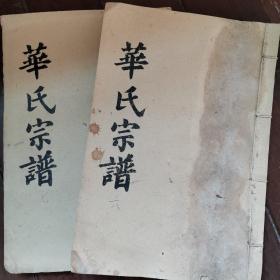 華氏宗譜
華氏宗譜